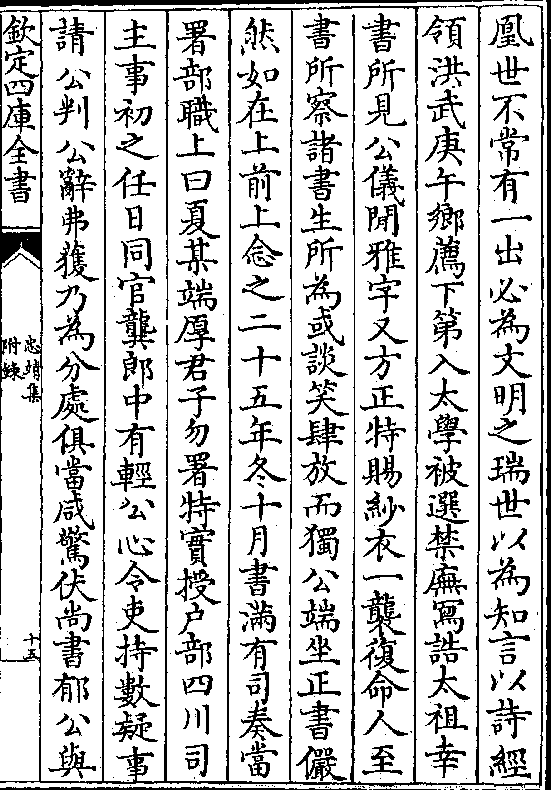 凰世不常有一出必為文明之瑞世以為知言以詩經
領洪武庚午鄉薦下第入太學被選禁廡寫誥太祖幸
書所見公儀閒雅字又方正特賜紗衣一襲復命人至
書所察諸書生所為或談笑肆放而獨公端坐正書儼
然如在上前上念之二十五年冬十月書滿有司奏當
署部職上曰夏某端厚君子勿署特實授户部四川司
主事初之任日同官龔郎中有輕公心令吏持數疑事
請公判公辭弗獲乃為分處俱當咸驚伏尚書郁公與
欽定四庫全書
忠靖集
附録
十五